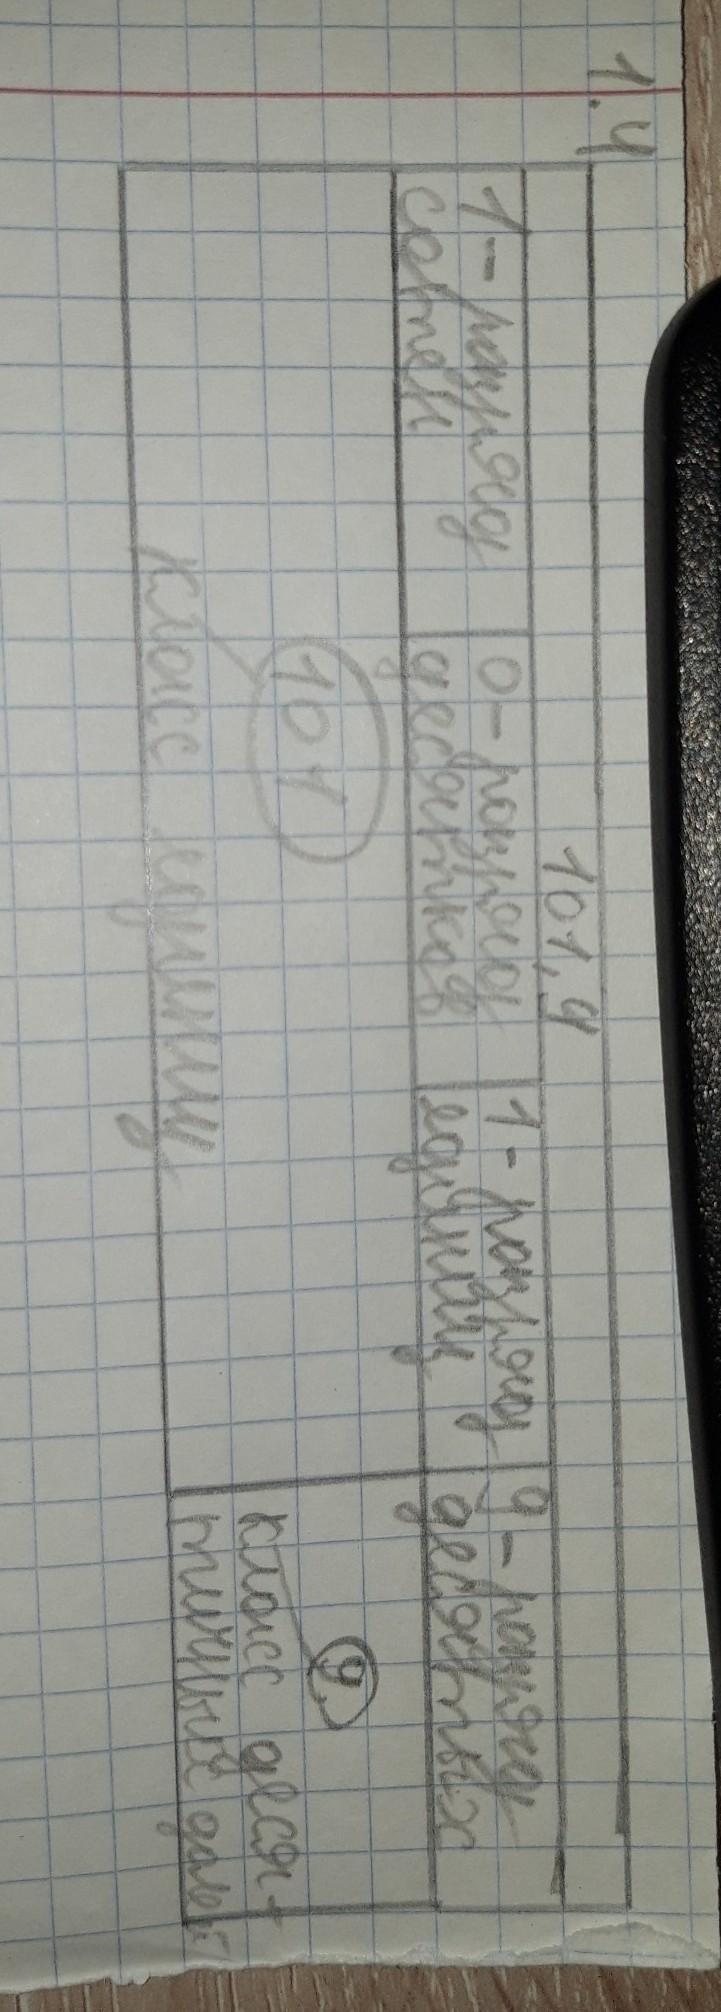 1.4
101,9
1-разряд
сотен
0-разряд
десятков
1-разряд
единиц
9-разряд
десятых
101
класс единиц
9
класс деся-
тичных дробей